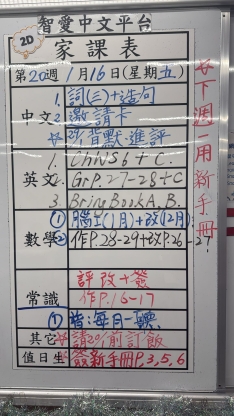 智愛中文平台
2D
家課表
第20週 1月16日(星期五)
中文
1. 詞(三)+造句
2. 邀請卡
☆ 29/背默、進評
英文
1. Ch1NS6 + C.
2. GrP.27-28+C
3. Bring Book A.B.
數學
① 腦立(1月)+改(12月)
② 作P.28-29+改P.26-27
評改+簽
常識
作P.16-17
① 背:每月一聽
其它
☆請20/前訂飯
值日生
☆簽新手冊P.3,5,6
☆下週一用新手冊!